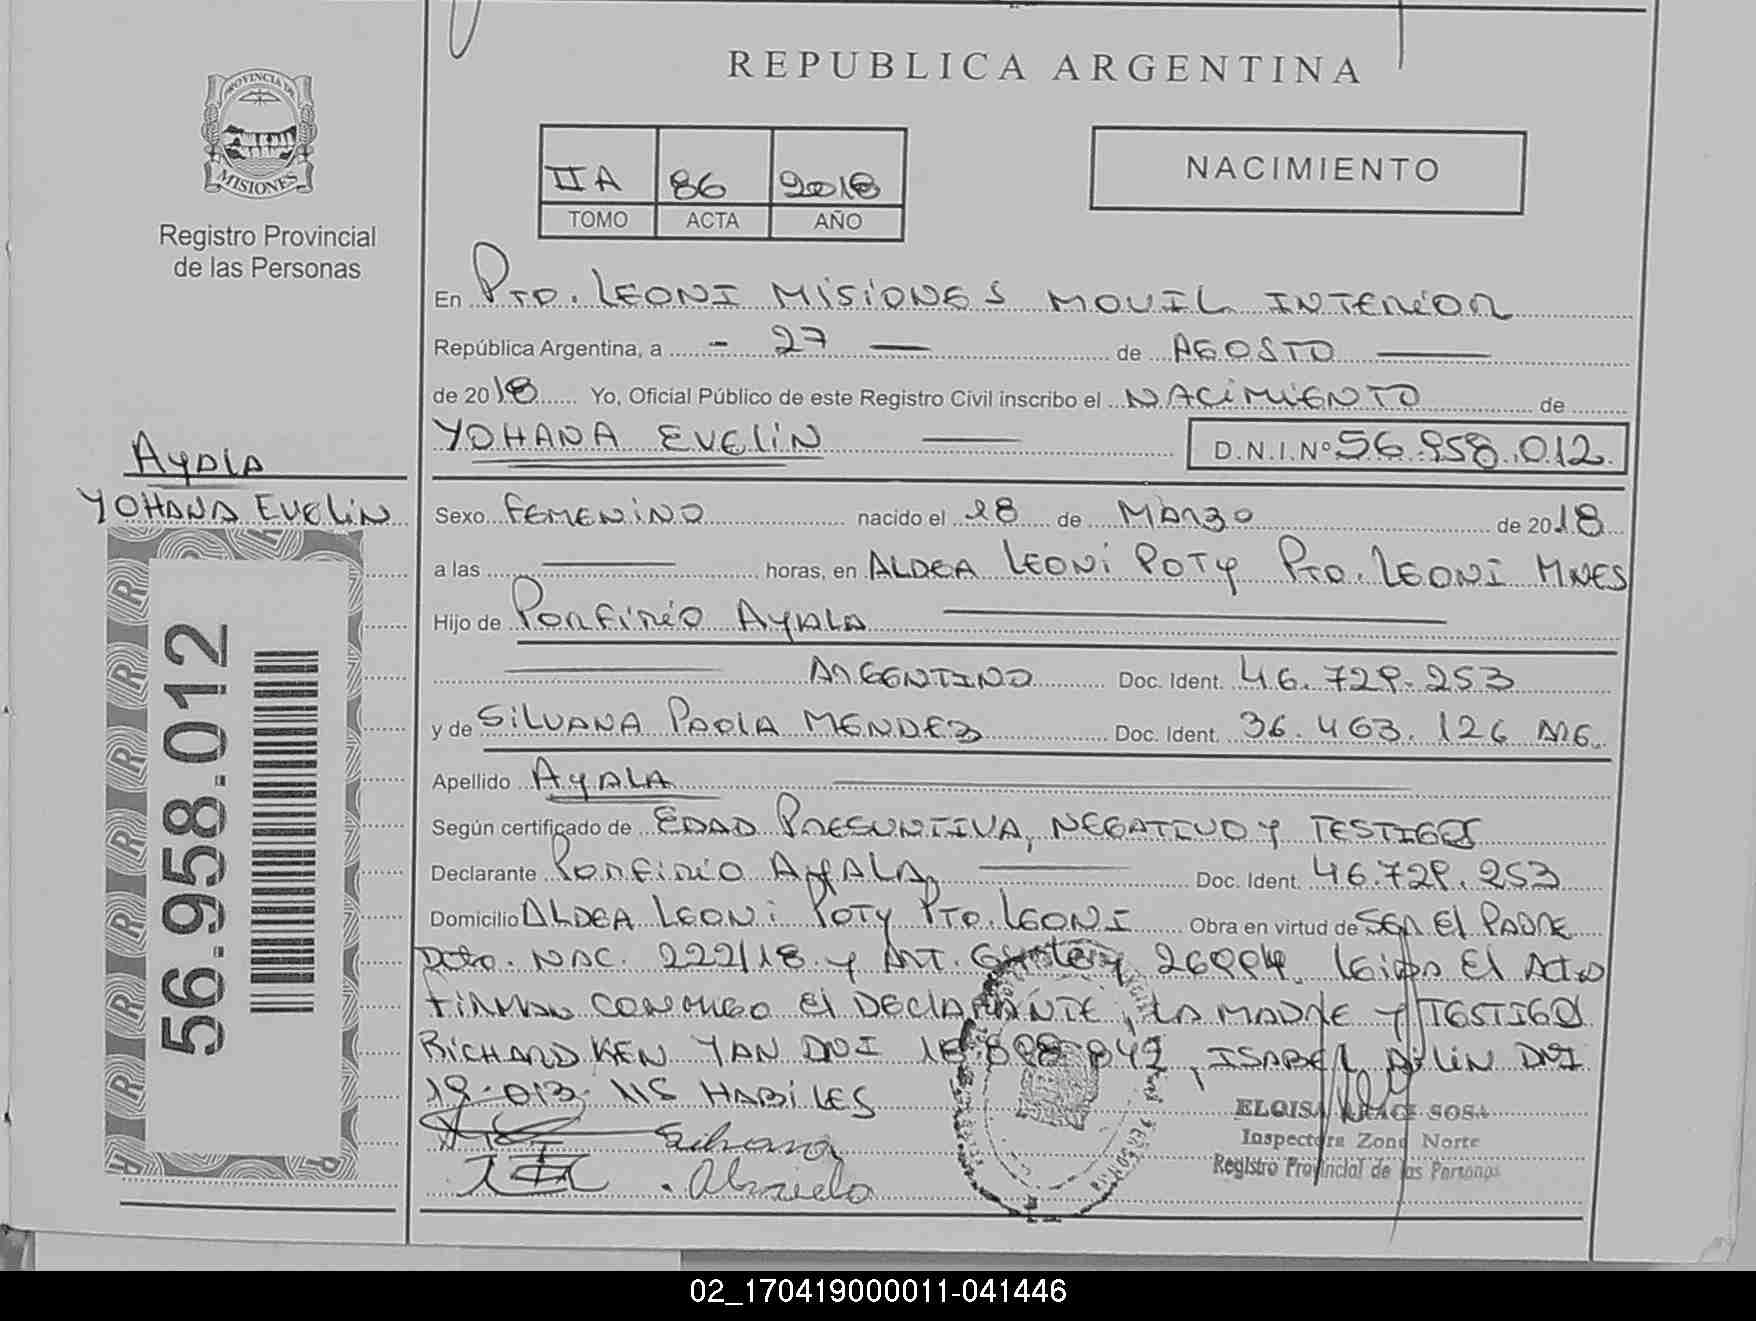 REPUBLICA ARGENTINA
PROVINCIA DE
MISIONES
Registro Provincial
de las Personas
IIA 86 2018
TOMO ACTA AÑO
NACIMIENTO
En Pto. LEONI MISIONES MOVIL INTERIOR
República Argentina, a - 27 — de AGOSTO —
de 2018 Yo, Oficial Público de este Registro Civil inscribo el NACIMIENTO de
YOHANA EVELIN — D.N.I.Nº 56.958.012
AYALA
YOHANA EVELIN
56.958.012
Sexo FEMENINO nacido el 28 de MARZO de 2018
a las — horas, en ALDEA LEONI POTY Pto. LEONI MNES
Hijo de PORFIRIO AYALA —
— ARGENTINO Doc. Ident. 46.729.253
y de SILVANA PAOLA MENDEZ Doc. Ident. 36.463.126 ARG.
Apellido AYALA —
Según certificado de EDAD PRESUNTIVA, NEGATIVO Y TESTIGOS
Declarante PORFIRIO AYALA — Doc. Ident. 46.729.253
Domicilio ALDEA LEONI POTY Pto. LEONI Obra en virtud de SER El PADRE
Dcto. NAC. 222/18 y ART. LEIDA El ActA
FIRMAN CONMIGO El DECLARANTE, LA MADRE Y TESTIGOS
RICHARD KEN YAN DNI , ISABEL DNI
19.013.115 HABILES
Silvana
ELOISA SOSA
Inspectora Zona Norte
Registro Provincial de las Personas
02_170419000011-041446